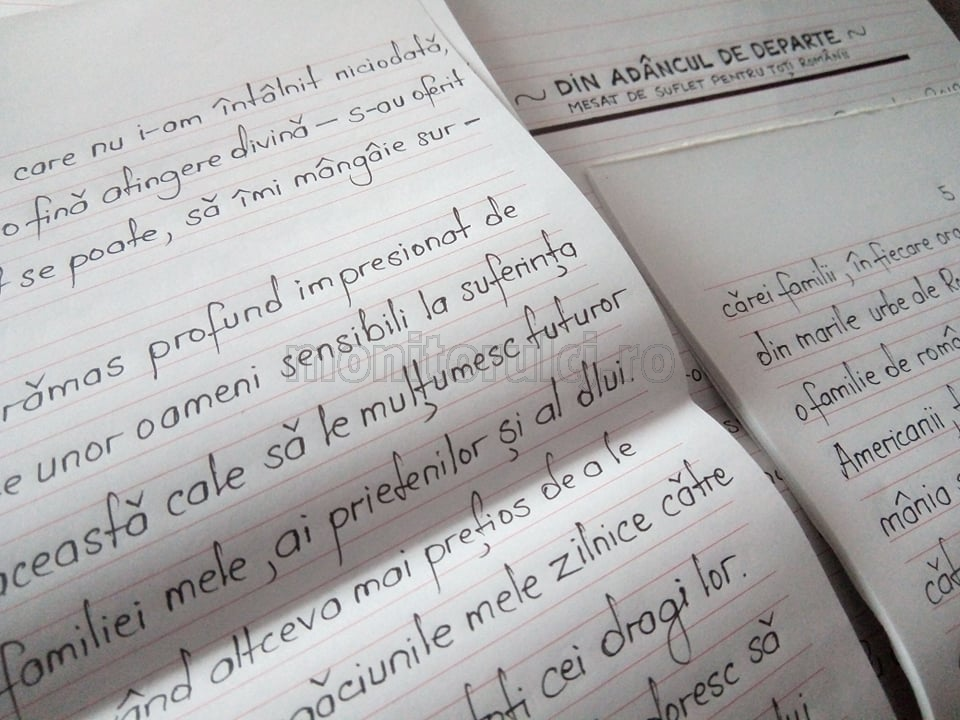 care nu i-am întâlnit niciodată,
o fină atingere divină – s-au oferit
se poate, să îmi mângâie sur-
rămas profund impresionat de
unor oameni sensibili la suferința
această cale să le mulțumesc tuturor
familiei mele, ai prietenilor și al dlui.
altceva mai prețios de a le
mele zilnice către
cei dragi lor.
doresc să
~ DIN ADÂNCUL DE DEPARTE ~
MESAT DE SUFLET PENTRU TOȚI ROMÂNII
5
cărei familii, în fiecare
din marile urbe ale
o familie de
Americanii
monitorulcj.ro